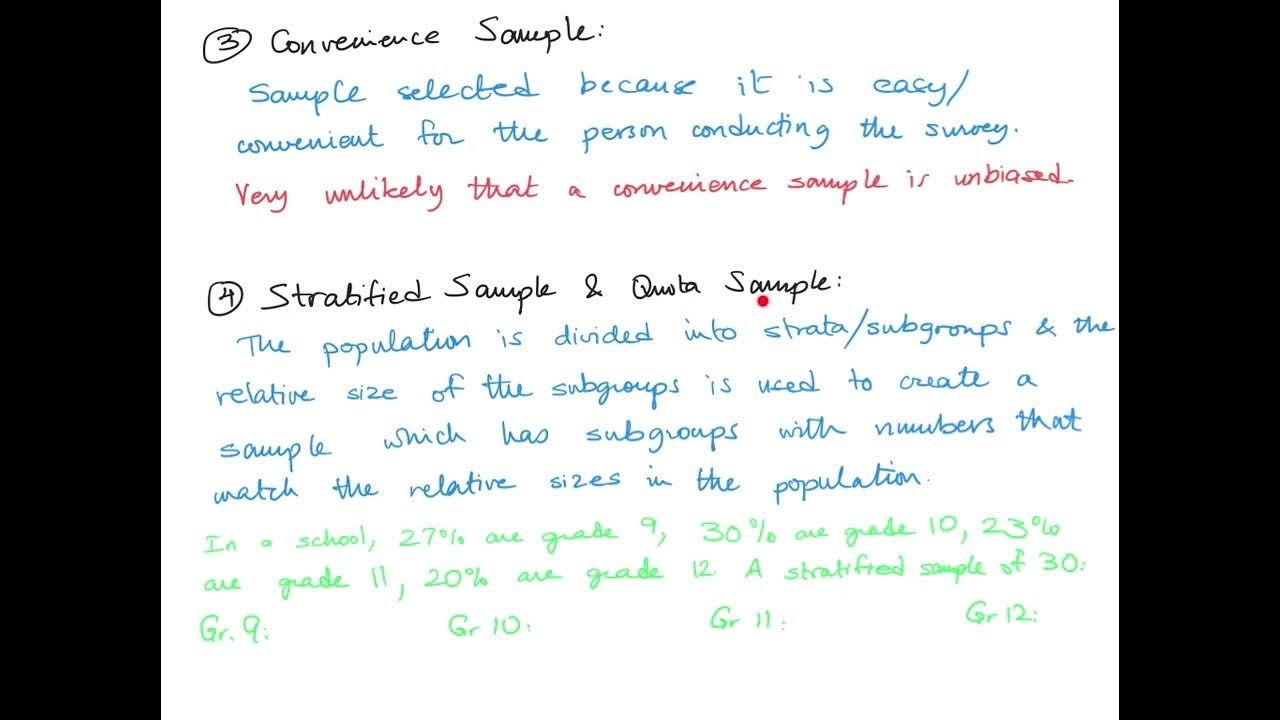 ③ Convenience Sample:
Sample selected because it is easy/
convenient for the person conducting the survey.
Very unlikely that a convenience sample is unbiased.
④ Stratified Sample & Quota Sample:
The population is divided into strata/subgroups & the
relative size of the subgroups is used to create a
sample which has subgroups with numbers that
match the relative sizes in the population.
In a school, 27% are grade 9, 30% are grade 10, 23%
are grade 11, 20% are grade 12. A stratified sample of 30:
Gr. 9: Gr 10: Gr 11: Gr 12: